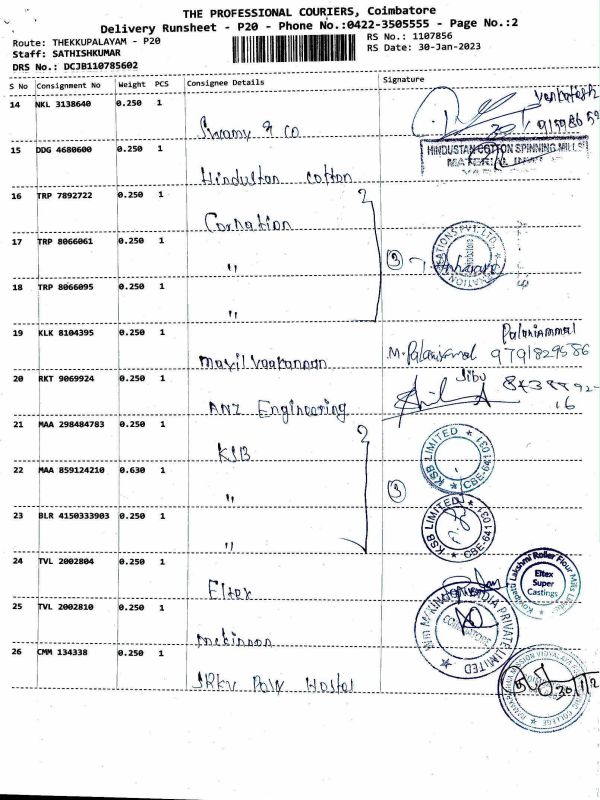 THE PROFESSIONAL COURIERS, Coimbatore
Delivery Runsheet - P20 - Phone No.:0422-3505555 - Page No.:2
Route: THEKKUPALAYAM - P20
RS No.: 1107856
Staff: SATHISHKUMAR
RS Date: 30-Jan-2023
DRS No.: DCJB110785602
S No Consignment No Weight PCS Consignee Details Signature
14 NKL 3138640 0.250 1
Swamy & Co
15 DDG 4680600 0.250 1
HINDUSTAN COTTON SPINNING MILLS
Hindustan cotton
16 TRP 7892722 0.250 1
Cornation
17 TRP 8066061 0.250 1
"
3
18 TRP 8066095 0.250 1
"
19 KLK 8104395 0.250 1
Palaniammal
M. Palaniammal 9791829586
20 RKT 9069924 0.250 1
Jibu
ANZ Engineering
16
21 MAA 298484783 0.250 1
KSB
KSB LIMITED ★ CBE-641031 ★
22 MAA 859124210 0.630 1
"
3
23 BLR 4150333903 0.250 1
"
KSB LIMITED ★ CBE-641031 ★
24 TVL 2002804 0.250 1
Eltex
Lakshmi Roller Flour Mills
Eltex
Super
Castings
25 TVL 2002810 0.250 1
Mckinnon
INDIA PRIVATE LIMITED
COIMBATORE
26 CMM 134338 0.250 1
SRKV Poly Hostel